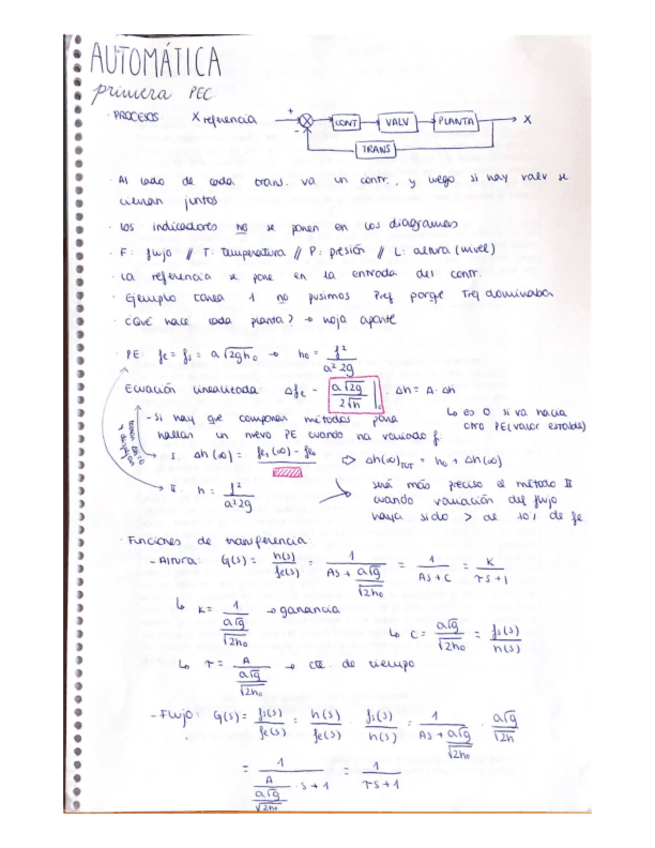 AUTOMÁTICA
primera PEC
· PROCESOS X referencia + - CONT VALV PLANTA X
TRANS
· Al lado de cada trans. va un contr., y luego si hay valv se
cierran juntos
· Los indicadores no se ponen en los diagramas
· F: flujo // T: temperatura // P: presión // L: altura (nivel)
· La referencia se pone en la entrada del contr.
· Ejemplo tarea 1 no pusimos Pref porqe Tref dominaba
· ¿Qué hace cada planta? → hoja aparte
· PE: fe = fs = a √2gh₀ → h₀ = f² / a² 2g
Ecuación linealizada: Δfe - a√2g / 2√h |₀ · Δh = A · Δh
- Si hay qe comparar métodos para
hallar un nuevo PE cuando ha variado f.
↳ es 0 si va hacia
otro PE (valor estable)
I. Δh(∞) = fe₁(∞) - fe₀ ⇨ Δh(∞)TOT = h₀ + Δh(∞)
II. h = f² / a² 2g
será más preciso el método II
cuando variación del flujo
haya sido > al 10% de fe
· Funciones de transferencia:
- Altura: G(s) = h(s) / fe(s) = 1 / (As + a√g / √2h₀) = 1 / (As + C) = K / (τs + 1)
↳ K = 1 / (a√g / √2h₀) → ganancia
↳ C = a√g / √2h₀ = fs(s) / h(s)
↳ τ = A / (a√g / √2h₀) → cte. de tiempo
- Flujo: G(s) = fs(s) / fe(s) = h(s) / fe(s) · fs(s) / h(s) = 1 / (As + a√g / √2h₀) · a√g / √2h
= 1 / (A / (a√g / √2h₀) · s + 1) = 1 / (τs + 1)